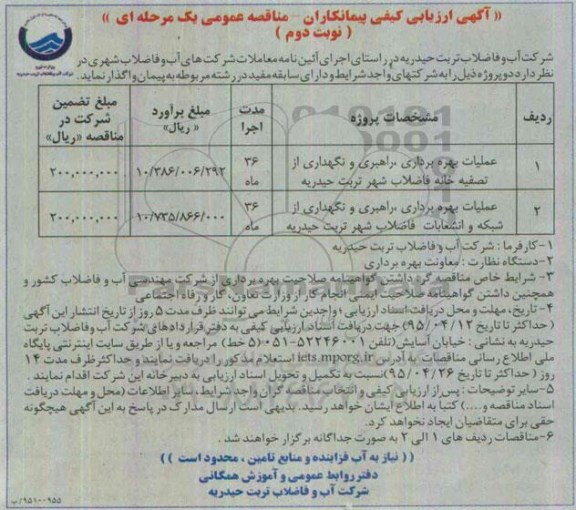 « آگهی ارزیابی کیفی پیمانکاران - مناقصه عمومی یک مرحله ای »
( نوبت دوم )
شرکت آب و فاضلاب تربت حیدریه در راستای اجرای آئین نامه معاملات شرکت های آب و فاضلاب شهری در
نظر دارد دو پروژه ذیل را به شرکتهای واجد شرایط و دارای سابقه مفید در رشته مربوطه به پیمان واگذار نماید.
ردیف
مشخصات پروژه
مدت اجرا
مبلغ برآورد « ریال»
مبلغ تضمین شرکت در مناقصه «ریال»
۱
عملیات بهره برداری ،راهبری و نگهداری از تصفیه خانه فاضلاب شهر تربت حیدریه
۳۶ ماه
۱۰/۳۸۶/۰۰۶/۲۹۲
۲۰۰,۰۰۰,۰۰۰
۲
عملیات بهره برداری ،راهبری و نگهداری از شبکه و انشعابات فاضلاب شهر تربت حیدریه
۳۶ ماه
۱۰/۷۳۵/۸۶۶/۰۰۰
۲۰۰,۰۰۰,۰۰۰
۱-کارفرما : شرکت آب و فاضلاب تربت حیدریه
۲-دستگاه نظارت : معاونت بهره برداری
۳- شرایط خاص مناقصه گر: داشتن گواهینامه صلاحیت بهره برداری از شرکت مهندسی آب و فاضلاب کشور و
همچنین داشتن گواهینامه صلاحیت ایمنی انجام کار از وزارت تعاون، کار و رفاه اجتماعی
۴- تاریخ، مهلت و محل دریافت اسناد ارزیابی : واجدین شرایط می توانند ظرف مدت ۵ روز از تاریخ انتشار این آگهی
( حداکثر تا تاریخ ۹۵/۰۴/۱۲) جهت دریافت اسناد ارزیابی کیفی به دفتر قراردادهای شرکت آب و فاضلاب تربت
حیدریه به نشانی : خیابان آسایش(تلفن ۵۲۲۴۶۰۰۱-۰۵۱(۵ خط) مراجعه و یا از طریق سایت اینترنتی پایگاه
ملی اطلاع رسانی مناقصات به آدرس iets.mporg.ir استعلام مذکور را دریافت نمایند و حداکثر ظرف مدت ۱۴
روز ( حداکثر تا تاریخ ۹۵/۰۴/۲۶) نسبت به تکمیل و تحویل اسناد ارزیابی به دبیرخانه این شرکت اقدام نمایند .
۵-سایر توضیحات : پس از ارزیابی کیفی و انتخاب مناقصه گران واجد شرایط، سایر اطلاعات (محل و مهلت دریافت
اسناد مناقصه و....) کتبا به اطلاع ایشان خواهد رسید. بدیهی است ارسال مدارک در پاسخ به این آگهی هیچگونه
حقی برای متقاضیان ایجاد نخواهد کرد.
۶-مناقصات ردیف های ۱ الی ۲ به صورت جداگانه برگزار خواهند شد .
(( نیاز به آب فزاینده و منابع تامین ، محدود است ))
دفتر روابط عمومی و آموزش همگانی
شرکت آب و فاضلاب تربت حیدریه
۹۵۱۰۰۹۵۵/ب